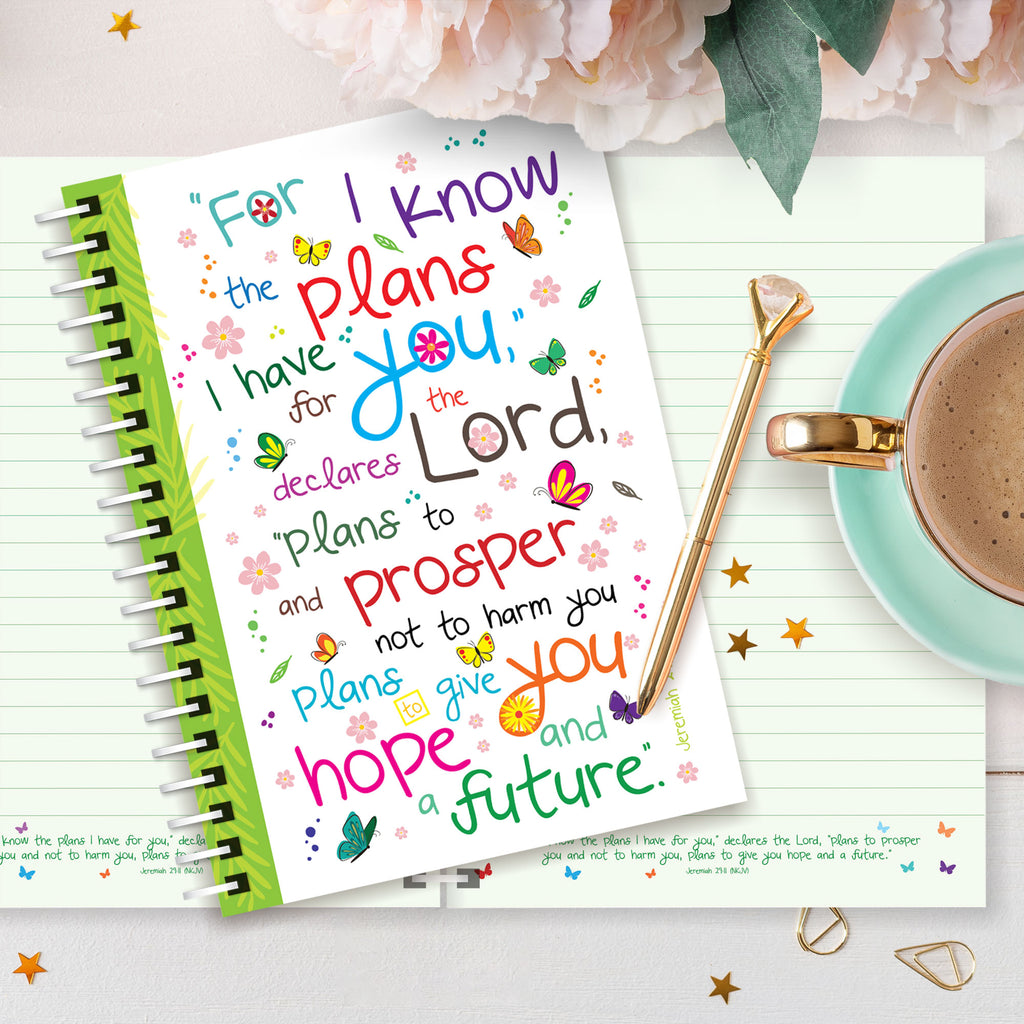 "For I know
the plans
I have for you,"
declares the Lord,
"plans to
and prosper
not to harm you
plans to give you
hope and
a future."
Jeremiah
know the plans I have for you,"
you and not to harm you, plans to
know the plans I have for you," declares the Lord, "plans to prosper
you and not to harm you, plans to give you hope and a future."
Jeremiah 29:11 (NKJV)